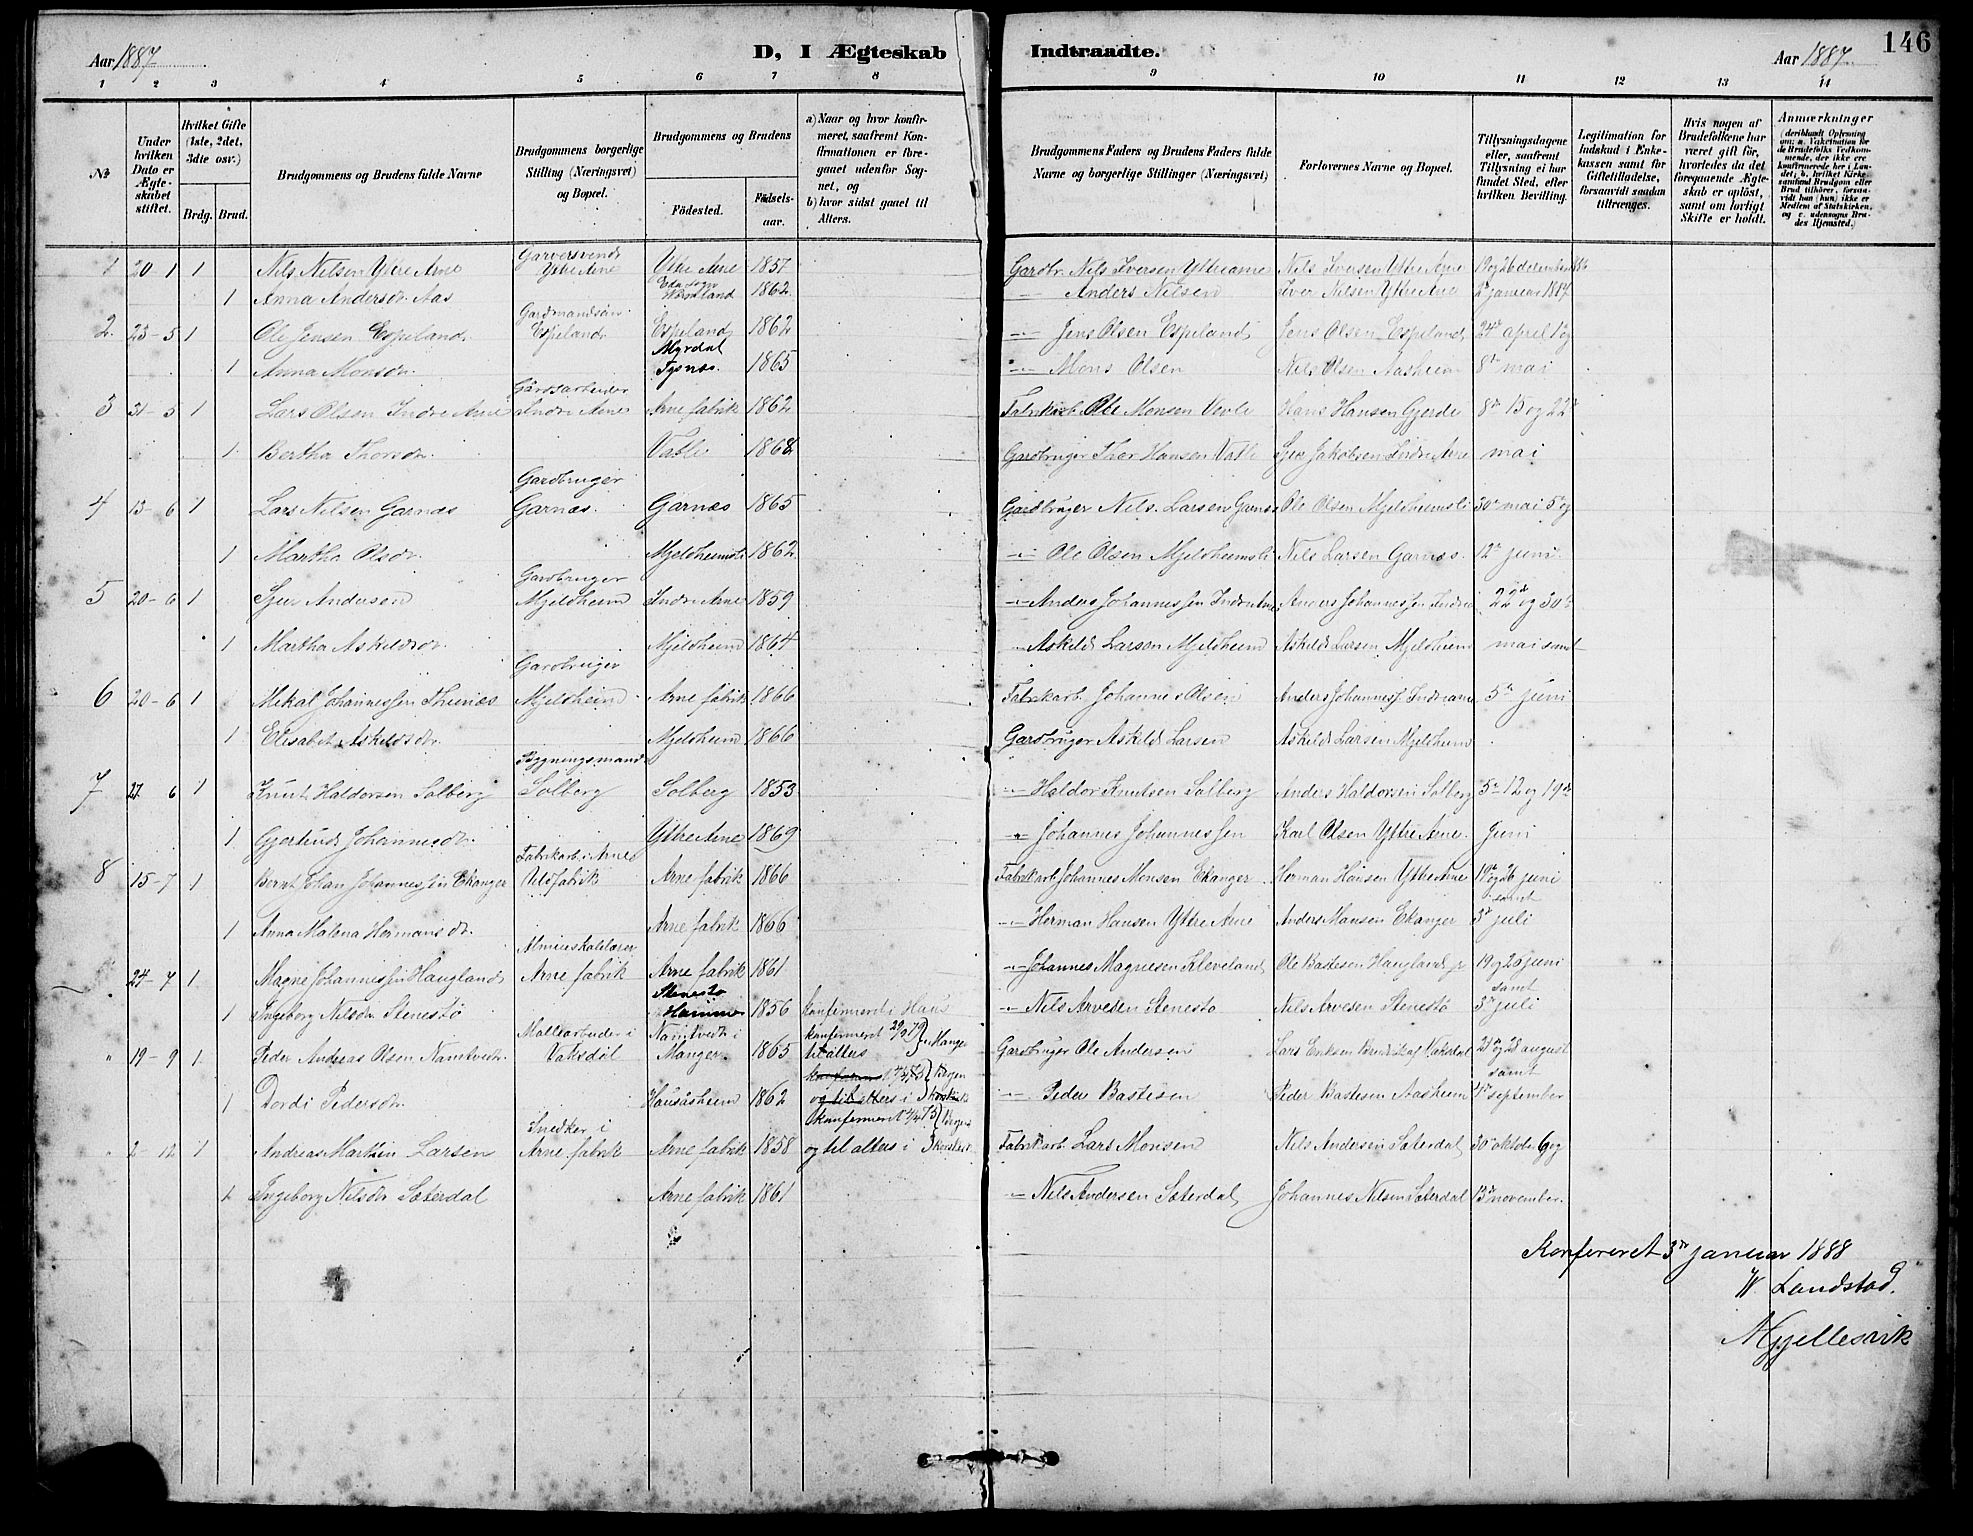 Aar 1887 D, I Ægteskab Indtraadte. Aar 1887 146
1 2 3 4 5 6 7 8 9 10 11 12 13 14
No
Under hvilken Dato er Ægteskabet stiftet.
Hvilket Gifte (1ste, 2det, 3dte osv.)
Brdg. Brud.
Brudgommens og Brudens fulde Navne
Brudgommens borgerlige Stilling (Næringsvei) og Bopæl.
Brudgommens og Brudens
Födested. Födselsaar.
a) Naar og hvor konfirmeret, saafremt Konfirmationen er foregaaet udenfor Sognet, og
b) hvor sidst gaaet til Alters.
Brudgommens Faders og Brudens Faders fulde Navne og borgerlige Stillinger (Næringsvei)
Forlovernes Navne og Bopæl.
Tillysningsdagene eller, saafremt Tillysning ei har fundet Sted, efter hvilken Bevilling.
Legitimation for Indskud i Enkekassen samt for Giftetilladelse, forsaavidt saadan tiltrænges.
Hvis nogen af Brudefolkene har været gift för, hvorledes da det foregaaende Ægteskab er oplöst, samt om lovligt Skifte er holdt.
Anmærkninger
(deriblandt Oplysning om: a. Vakcination for de Brudefolks Vedkommende, der ikke ere konfirmerede her i Landet; b. hvilket Kirkesamfund Brudgom eller Brud tilhörer, forsaavidt han (hun) ikke er Medlem af Statskirken, og c. udensogns Brudes Hjemsted.)
1 20-1 1 Nils Nilsen Yttre Arne Garversvend Yttre Arne Yttre Arne 1857 Gardbr. Nils Iversen Yttre arne Nils Iversen Yttre Arne 19 og 26 december 1886
1 Anna Andersdr. Aas 1862 Anders Nilsen Iver Nilsen Yttre Arne 2 januar 1887
2. 23-5 1 Ole Jensen Espeland Gardmandsön Espeland Espeland 1862 Jens Olsen Espeland Jens Olsen Espeland 24de april 1 og
1 Anna Monsdr. Myrdal Tysnæs. 1865 Mons Olsen Nils Olsen Aasheim 8de mai
3 31-5 1 Lars Olsen Indre Arne Gårdsarbeider Indre Arne Arne fabrik 1862 Fabrikarb. Ole Monsen Hans Hansen Gjerde 8de 15 og 22de
1 Bertha Thorsdr. Valle 1868 Gardbruger Thor Hansen Valle Jakobsen Indre Arne mai
4 13-6 1 Lars Nilsen Garnæs Gardbruger Garnæs. Garnæs 1865 Gardbruger Nils Larsen Garnæs Ole Olsen Mjeldheimsli 30de mai 5 og
1 Martha Olsdr. Mjeldheimsli 1862 Ole Olsen Mjeldheimsli Nils Larsen Garnæs. 12te juni.
5 20-6 1 Sjur Andersen Gardbruger Mjeldheim Indre Arne 1859 Anders Johannessen Indre Arne Anders Johannessen Indre 22de og 30te
1 Martha Askildsdr. Mjeldheim 1864 Askild Larsen Mjeldheim Askild Larsen Mjeldheim mai samt
6 20-6 1 Mikal Johannessen Thunæs Gardbruger Mjeldheim Arne fabrik 1866 Fabrikarb. Johannes Olsen Anders Johannessen Indre arne 5te juni
1 Elisabet Askildsdr. Mjeldheim 1866 Gardbruger Askild Larsen Askild Larsen Mjeldheim
7 27 6 1 Knut Haldorsen Solberg Bygningsmand Solberg Solberg 1853 Haldor Knutsen Solberg Anders Haldorsen Solberg 5te 12 og 19de
1 Gjertrud Johannesdr. Yttre Arne 1869 Johannes Johannessen Karl Olsen Yttre Arne. juni
8 15-7 1 Bernt Johan Johannessen Ekanger Fabrikarb. i Arne Uldfabrik Arne fabrik 1866 Fabrikarb Johannes Monsen Ekanger Herman Hansen Yttre Arne 19de og 26 juni samt
1 Anna Malena Hermansdr. Arne fabrik 1866 Herman Hansen Yttre Arne Anders Monsen Ekanger 3de juli
" 24-7 1 Magne Johannessen Haugland Almueskolelærer Arne fabrik Arne fabrik 1861 Johannes Magnesen Kleveland Ole Bastesen Haugland 19 og 26 juni samt
1 Ingeborg Nilsdr Stenestö Stenestö Hammer 1856 konfirmert i Haus Nils Arvesen Stenestö Nils Arvesen Stenestö 3de juli
" 19-9 1 Peder Andreas Olsen Namtvedt Molloarbeider i Vaksdal Namtvedt i Manger 1865 konfirmeret 29/9 79 til alters i Manger Gardbruger Ole Andersen Lars Eriksen Vaksdal 21 og 28 august samt
1 Dordi Pedersdr. Hausåsheim 1862 og til alters i Peder Bastesen Peder Bastesen Aasheim 4de september
" 2-12 1 Andreas Martin Larsen Snedker i Arne fabrik Arne fabrik 1858 konfirmeret 73 Bergen og til alters i Fabrikarb. Lars Monsen Nils Andersen Sæterdal 30te oktober 6 og
1 Ingeborg Nilsdr Sæterdal Arne fabrik 1861 Nils Andersen Sæterdal Johannes Nilsen Sæterdal 13de november.
Konfereret 3de januar 1888
W. Landstad.
M Gjellesvik